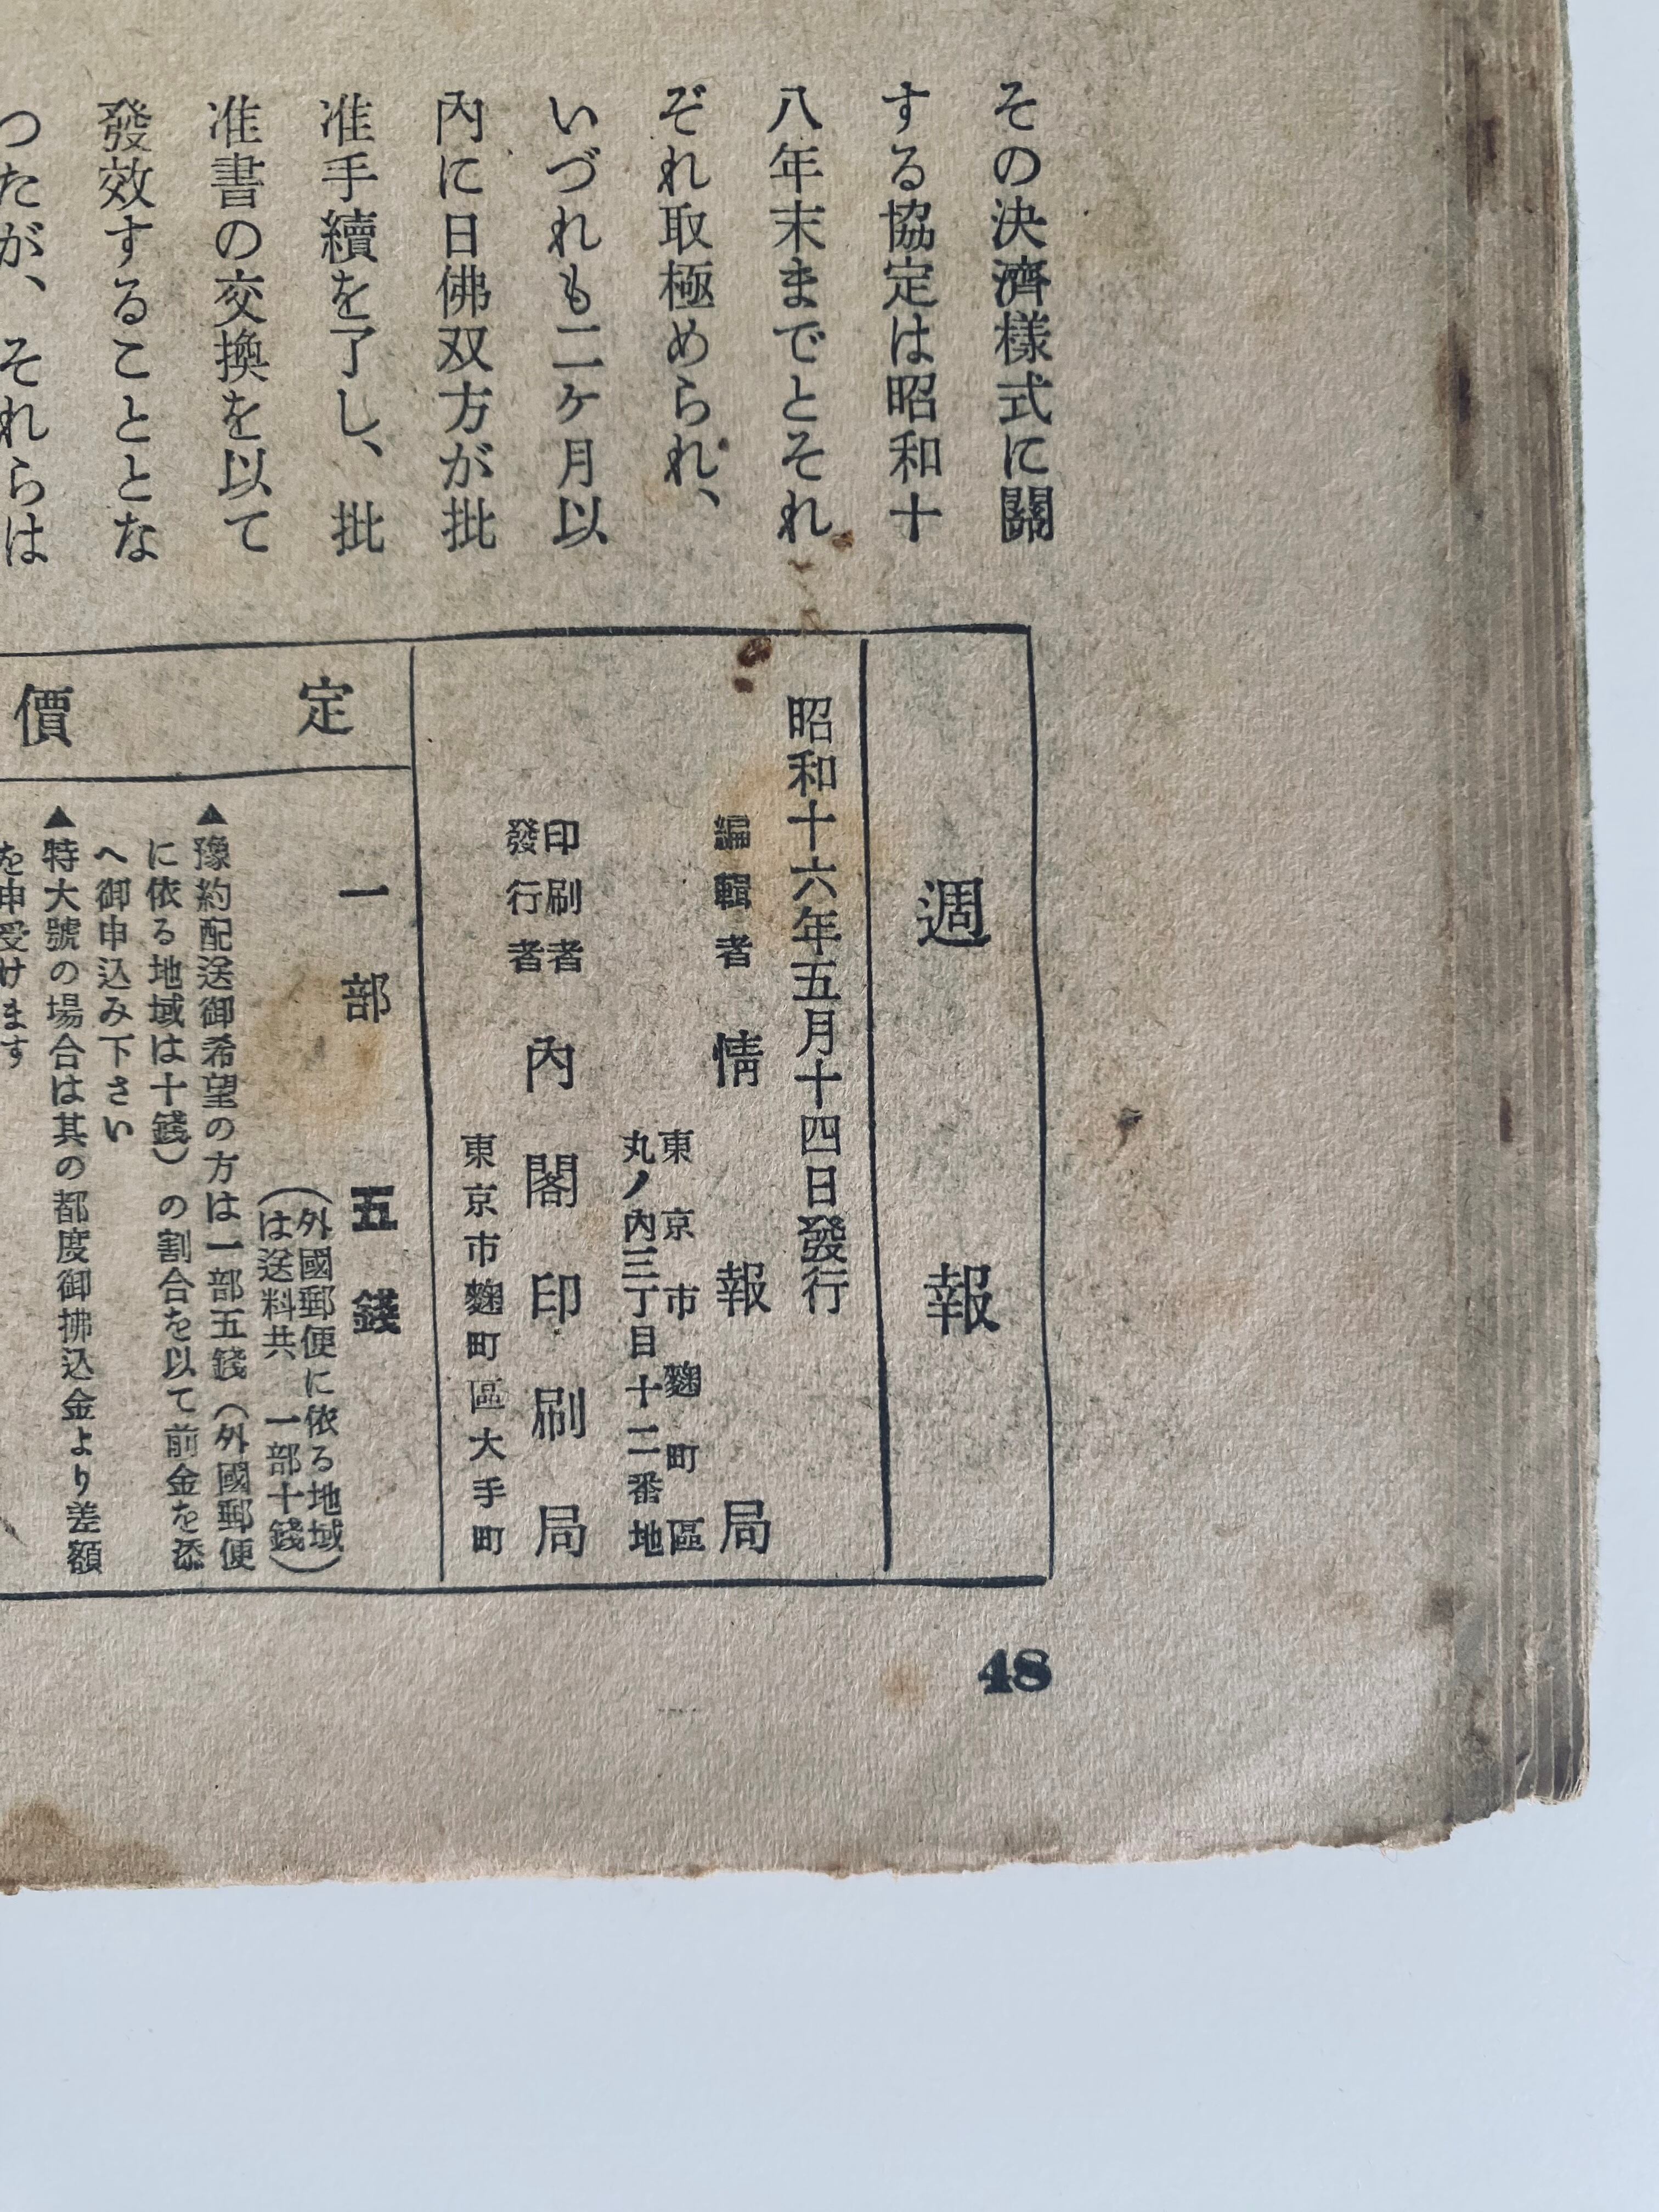 その決濟樣式に關
する協定は昭和十
八年末までとそれ
ぞれ取極められ、
いづれも二ケ月以
內に日佛双方が批
准手續を了し、批
准書の交換を以て
發效することとな
つたが、それらは
週報
昭和十六年五月十四日發行
編輯者 情報局
東京市麴町區
丸ノ內三丁目十二番地
印刷者
發行者
內閣印刷局
東京市麴町區大手町
定價
一部 五錢
(外國郵便に依る地域
は送料共 一部十錢)
▲豫約配送御希望の方は一部五錢(外國郵便
に依る地域は十錢)の割合を以て前金を添
へ御申込み下さい
▲特大號の場合は其の都度御拂込金より差額
を申受けます
48